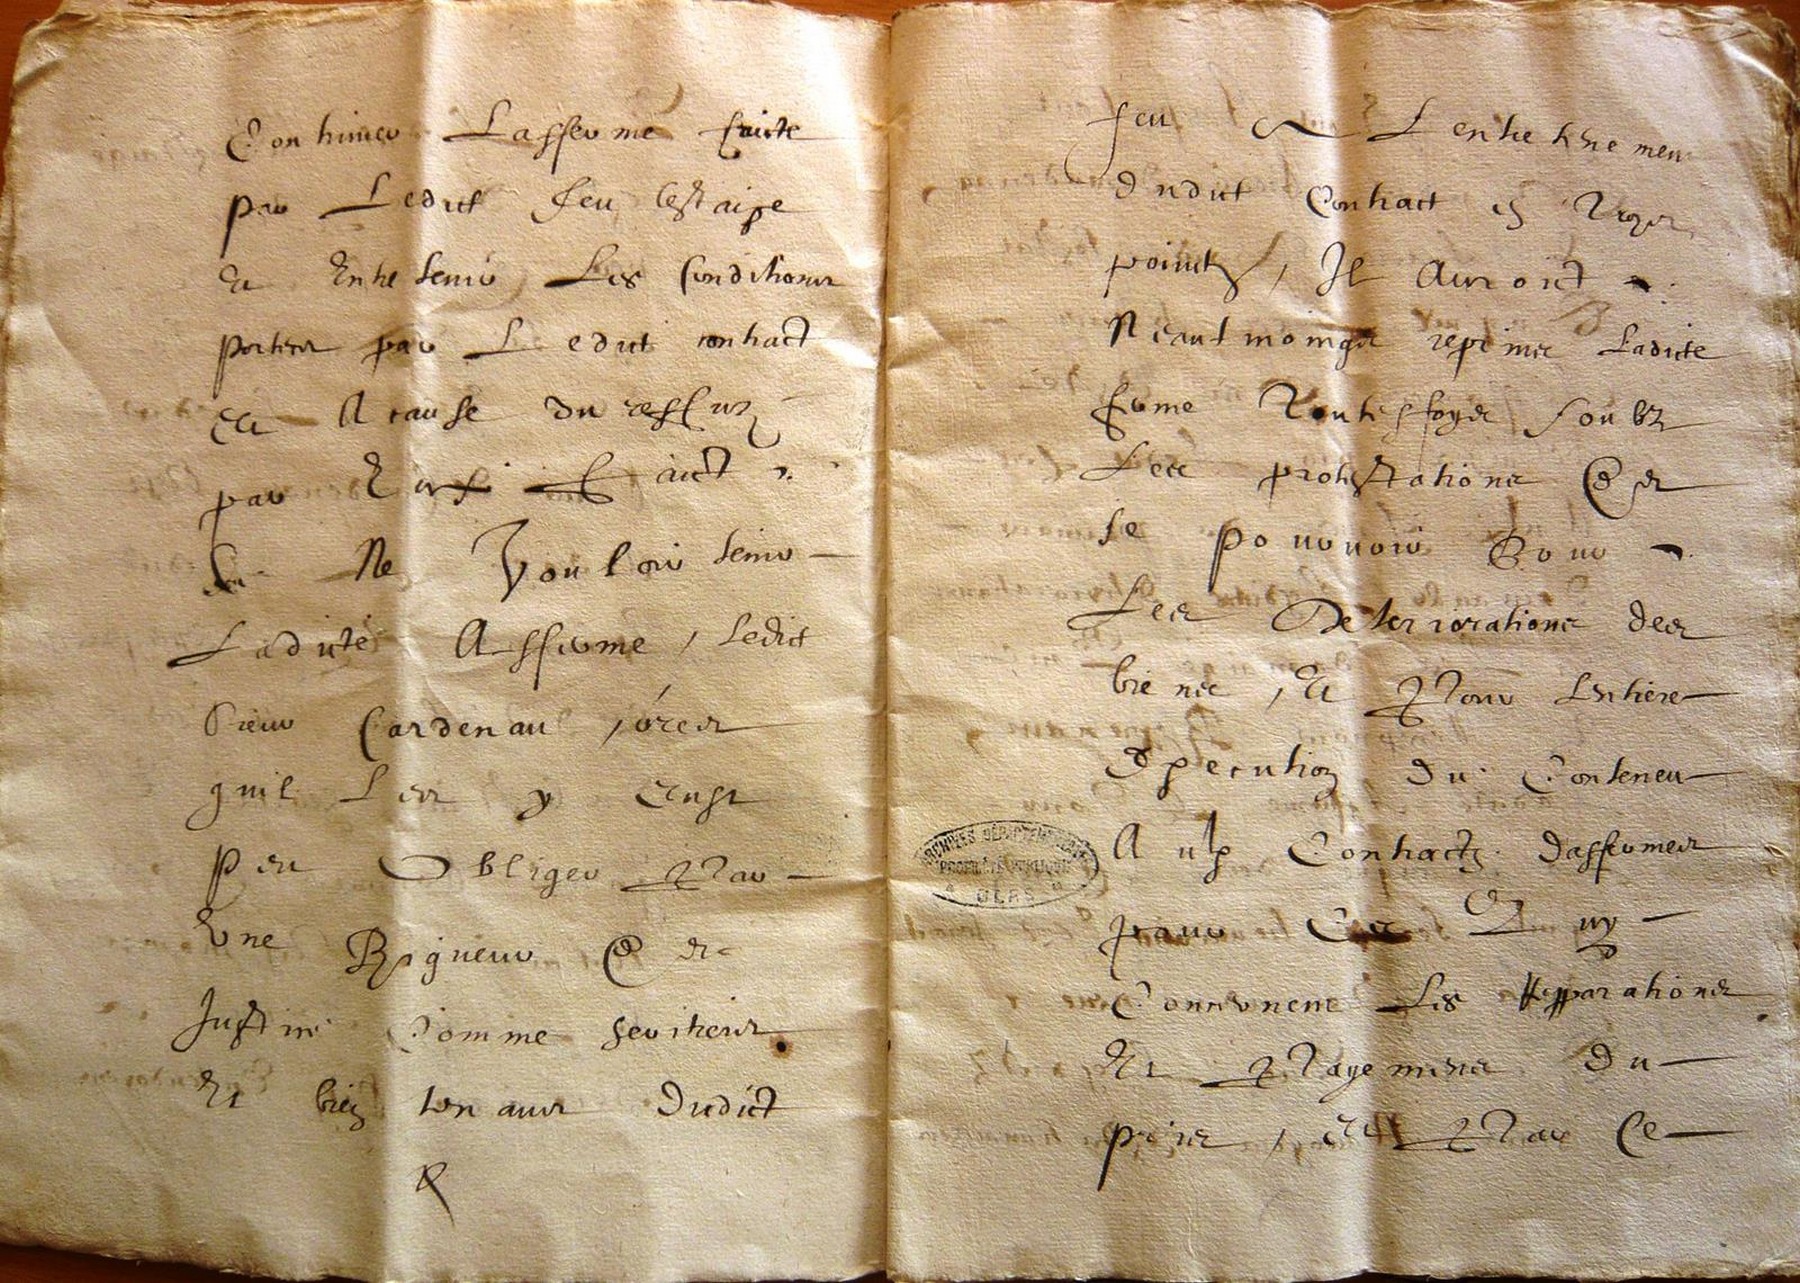 Continuer Lafferme faicte
par Ledict feu lestaige
Et Entretenir Les Conditions
portees par Ledict contract
Et A cause du reffuz
par Eux faict
Ne Vouloir tenir
Ladicte Afferme, Ledict
Sieur Cardenau,
quil Les y eust
peu Obliger Par
Une Rigueur de
Justice Comme heritiers
Et bien tenans Dudict
feu Lentretenement
Dudict Contract en
pointz, Il Auroict
Neantmoingz reprinse Ladicte
ferme Touttesfoys soubz
Les protestations de
se pouvoir Pour
Les Deteriorations des
biens, Et Pour Lentiere
Execution du Conteneu
Contractz daffermes
pour Ce Quy
Concernent Les Repparations
Et Payemens Du
pris, Et Par Ce
ARCHIVES DÉPARTEMENTALES
PROPRIÉTÉ PUBLIQUE
GERS